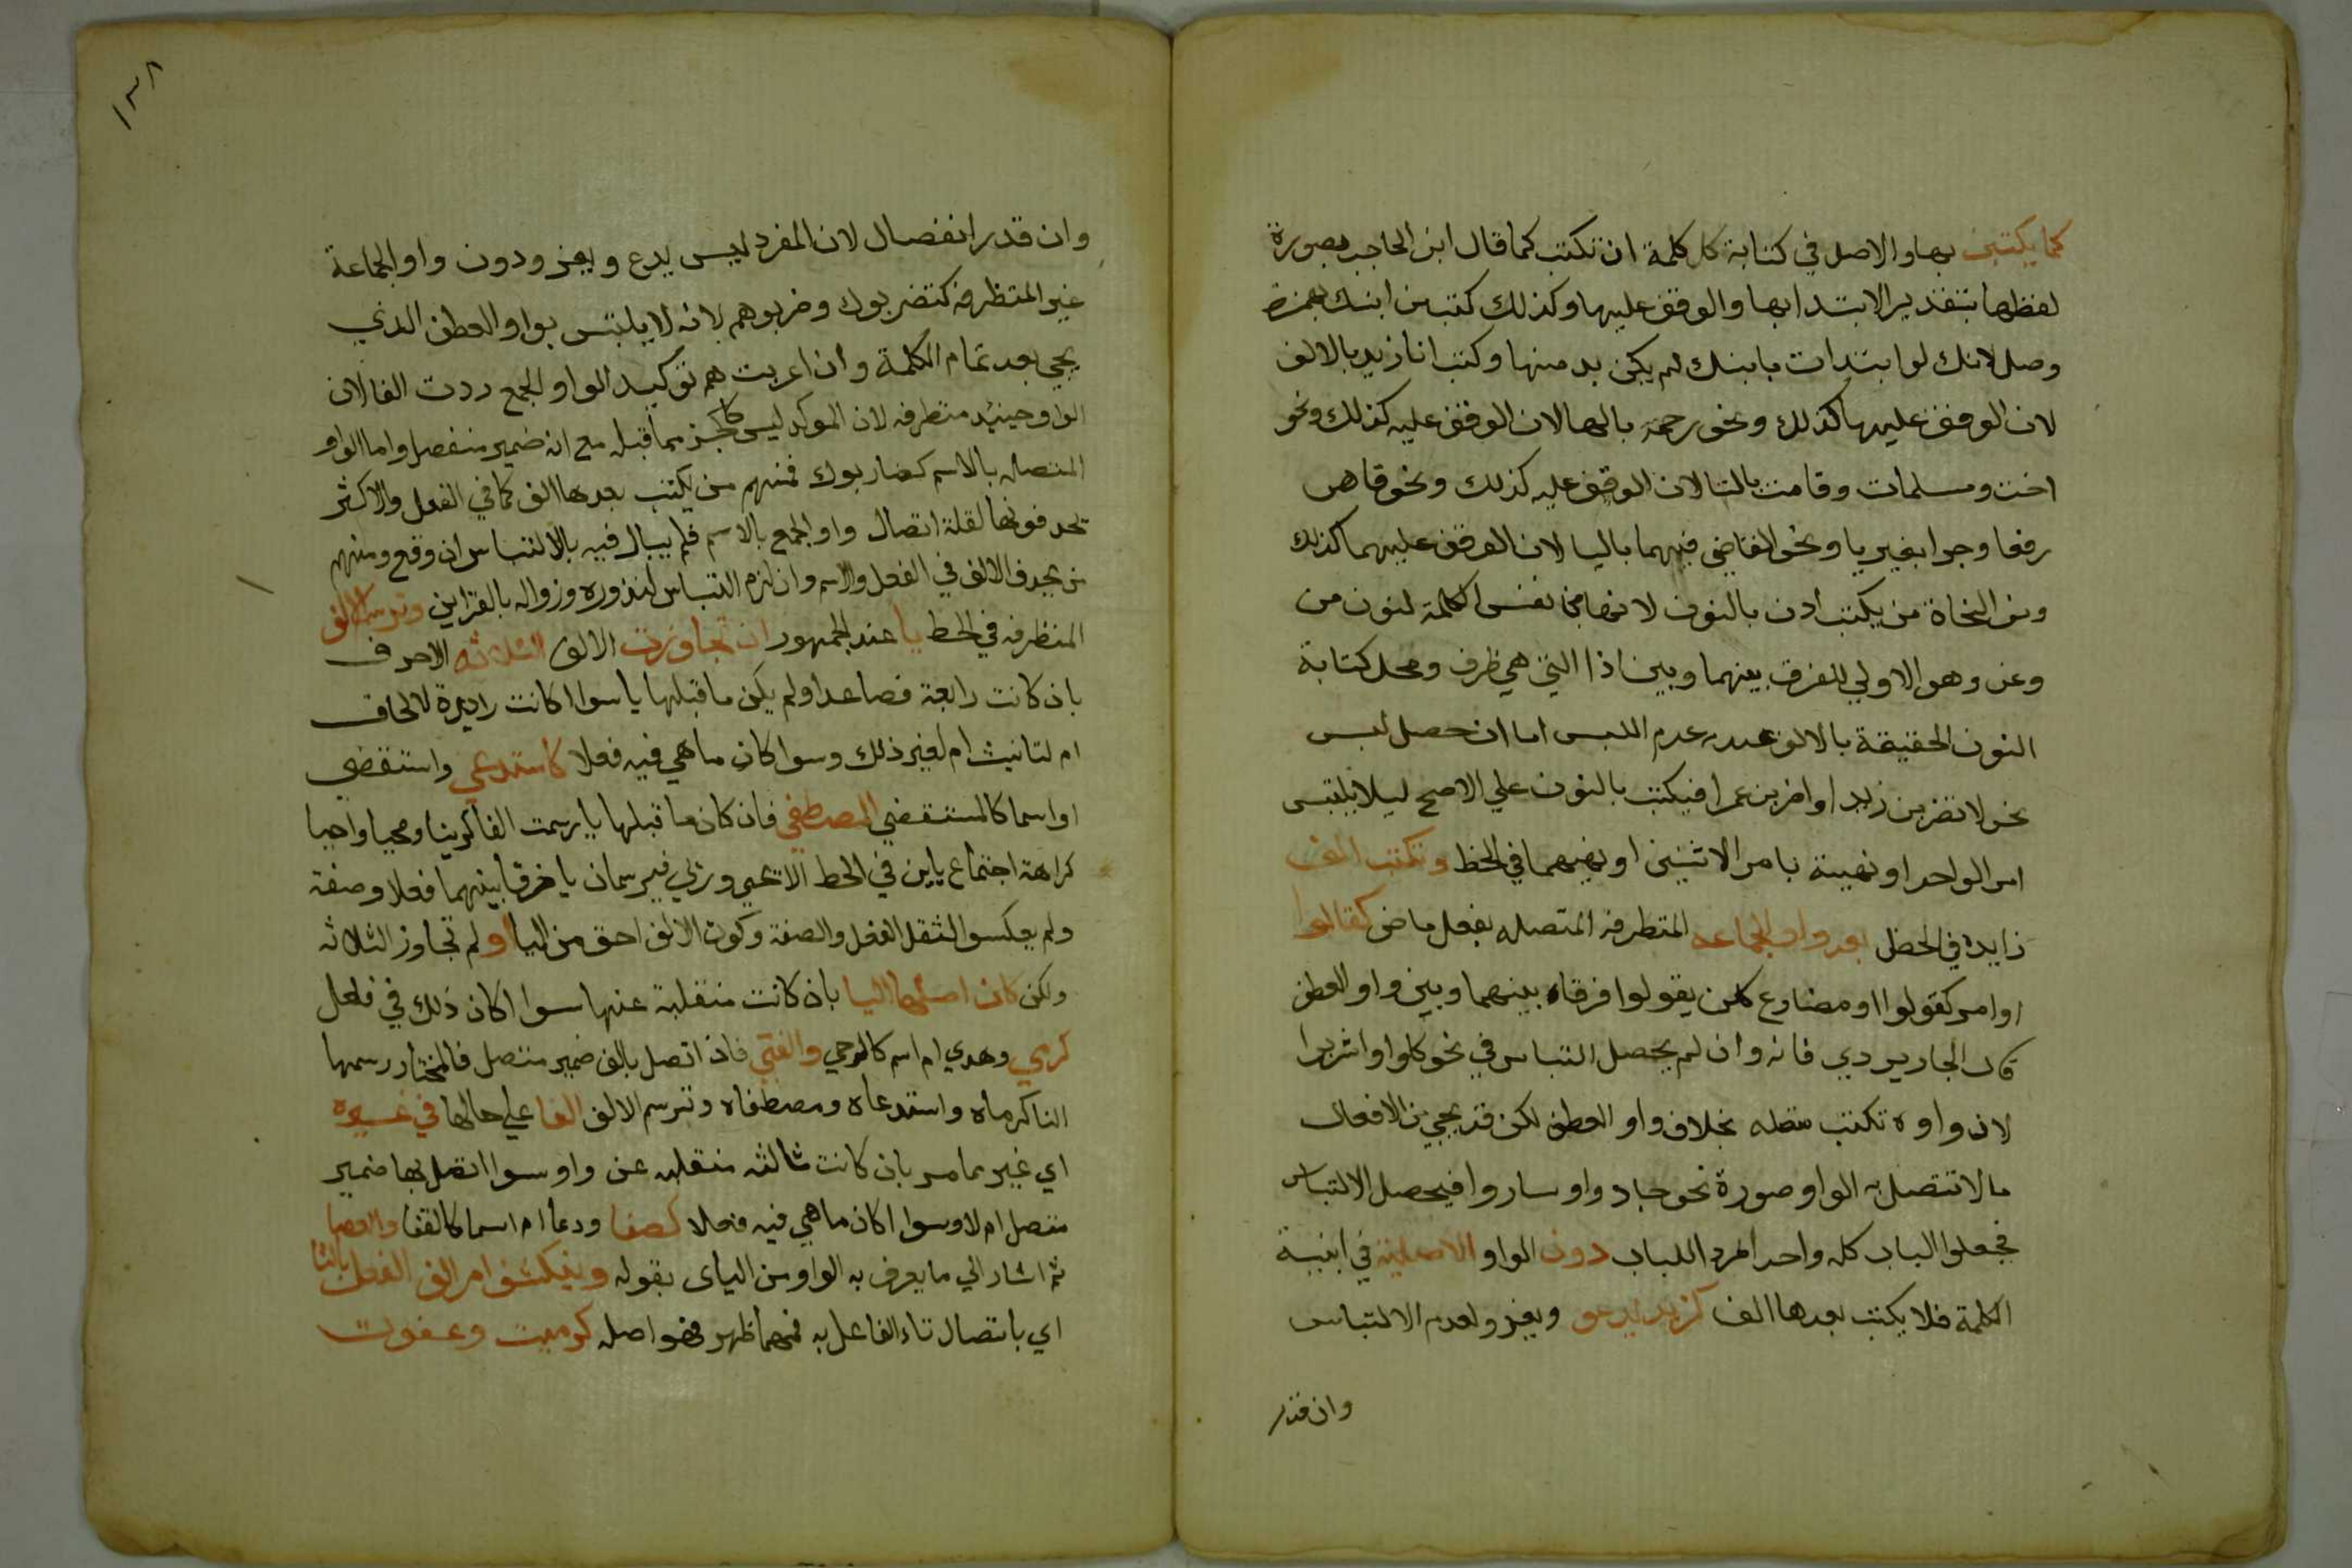 كما يكتبن بها والاصل في كتابة كل كلمة ان تكتب كما قال ابن الحاجب بصورة
لفظها بتقدير الابتدا بها والوقف عليها وكذلك كتب من ابنك بهمزة
وصل لانك لو ابتدات بابنك لم يكن بد منها وكتب انا زيد بالالف
لان الوقف عليها كذلك ونحو رحمة بالها لان الوقف عليه كذلك ونحو
اخت ومسلمات وقامت بالتا لان الوقف عليه كذلك ونحو قاض
رفعا وجرا بغير يا ونحو القاضي فيهما باليا لان الوقف عليهما كذلك
ومن النحاة من يكتب اذن بالنون لانها من نفس الكلمة لنون من
وعن وهو الاولي للفرق بينهما وبين اذا التي هي ظرف ومحل كتابة
النون الخفيفة بالالف عند عدم اللبس اما ان حصل لبس
نحو لا تضربن زيدا واضربن عمرا فيكتب بالنون علي الاصح ليلا يلتبس
امر الواحد او نهيه بامر الاثنين او نهيهما في الخط وتكتب الف
زايدة في الخط بعد واو الجماعة المتطرفه المتصله بفعل ماض كقالوا
او امر كقولوا او مضارع كلن يقولوا فرقا بينهما وبين واو العطف
قال الجاربردي فانه وان لم يحصل التباس في نحو كلوا واشربوا
لان واوه تكتب متصله بخلاف واو العطف لكن قد يجي من الافعال
ما لا تتصل به الواو صورة نحو جادوا وساروا فيحصل الالتباس
فجعلوا الباب كله واحدا طردا للباب دون الواو الاصلية في ابنية
الكلمة فلا يكتب بعدها الف كزيد يدعو ويغزو لعدم الالتباس
وان قدر
١٣٨
وان قدر انفصال لان المفرد ليس يدع ويغز ودون واو الجماعة
غير المتطرفه كتضربوك وضربوهم لانه لا يلتبس بواو العطف الذي
يجي بعد تمام الكلمة وان اعربت هم توكيد الواو الجمع رددت الفا لان
الواو حينيد متطرفه لان الموكد ليس كالجز مما قبله مع انه ضمير منفصل واما الواو
المتصله بالاسم كضاربوك فمنهم من يكتب بعدها الف كما في الفعل والاكثر
يحذفونها لقلة اتصال واو الجمع بالاسم فلم يبال فيه بالالتباس ان وقع ومنهم
من يحذف الالف في الفعل والاسم وان لزم التباس لنذوره وزواله بالقراين وترسم الالف
المتطرفه في الخط يا عند الجمهور ان تجاوزت الالف الثلاثه الاحرف
بان كانت رابعة فصاعدا ولم يكن ما قبلها يا سوا اكانت زايدة لالحاق
ام لتانيث ام لغير ذلك وسوا كان ما هي فيه فعلا كاستدعي واستقضي
او اسما كالمستقضي المصطفي فان كان ما قبلها يا رسمت الفا كرينا ومحيا واحيا
كراهة اجتماع ياين في الخط الا يحي وزني فيرسمان يا فرقا بينهما فعلا وصفة
ولم يعكسوا لثقل الفعل والصفة وكون الالف احق من اليا او لم تجاوز الثلاثه
ولكن كان اصلها اليا بان كانت منقلبة عنها سوا اكان ذلك في فعل
كرمي وهدي ام اسم كالرحي والفتي فان اتصل بالف ضمير متصل فالمختار رسمها
الفا كرماه واستدعاه ومصطفاه وترسم الالف الفا علي حالها في غيره
اي غير ما مر بان كانت ثالثه منقلبه عن واو سوا اتصل بها ضمير
متصل ام لا وسوا اكان ما هي فيه فعلا كصفا ودعا ام اسما كالقفا والعصا
ثم اشار الي ما يعرف به الواو من الياي بقوله وينكشف امر الف الفعل بالتا
اي باتصال تاء الفاعل به فمهما ظهر فهو اصله كرميت وعفوت